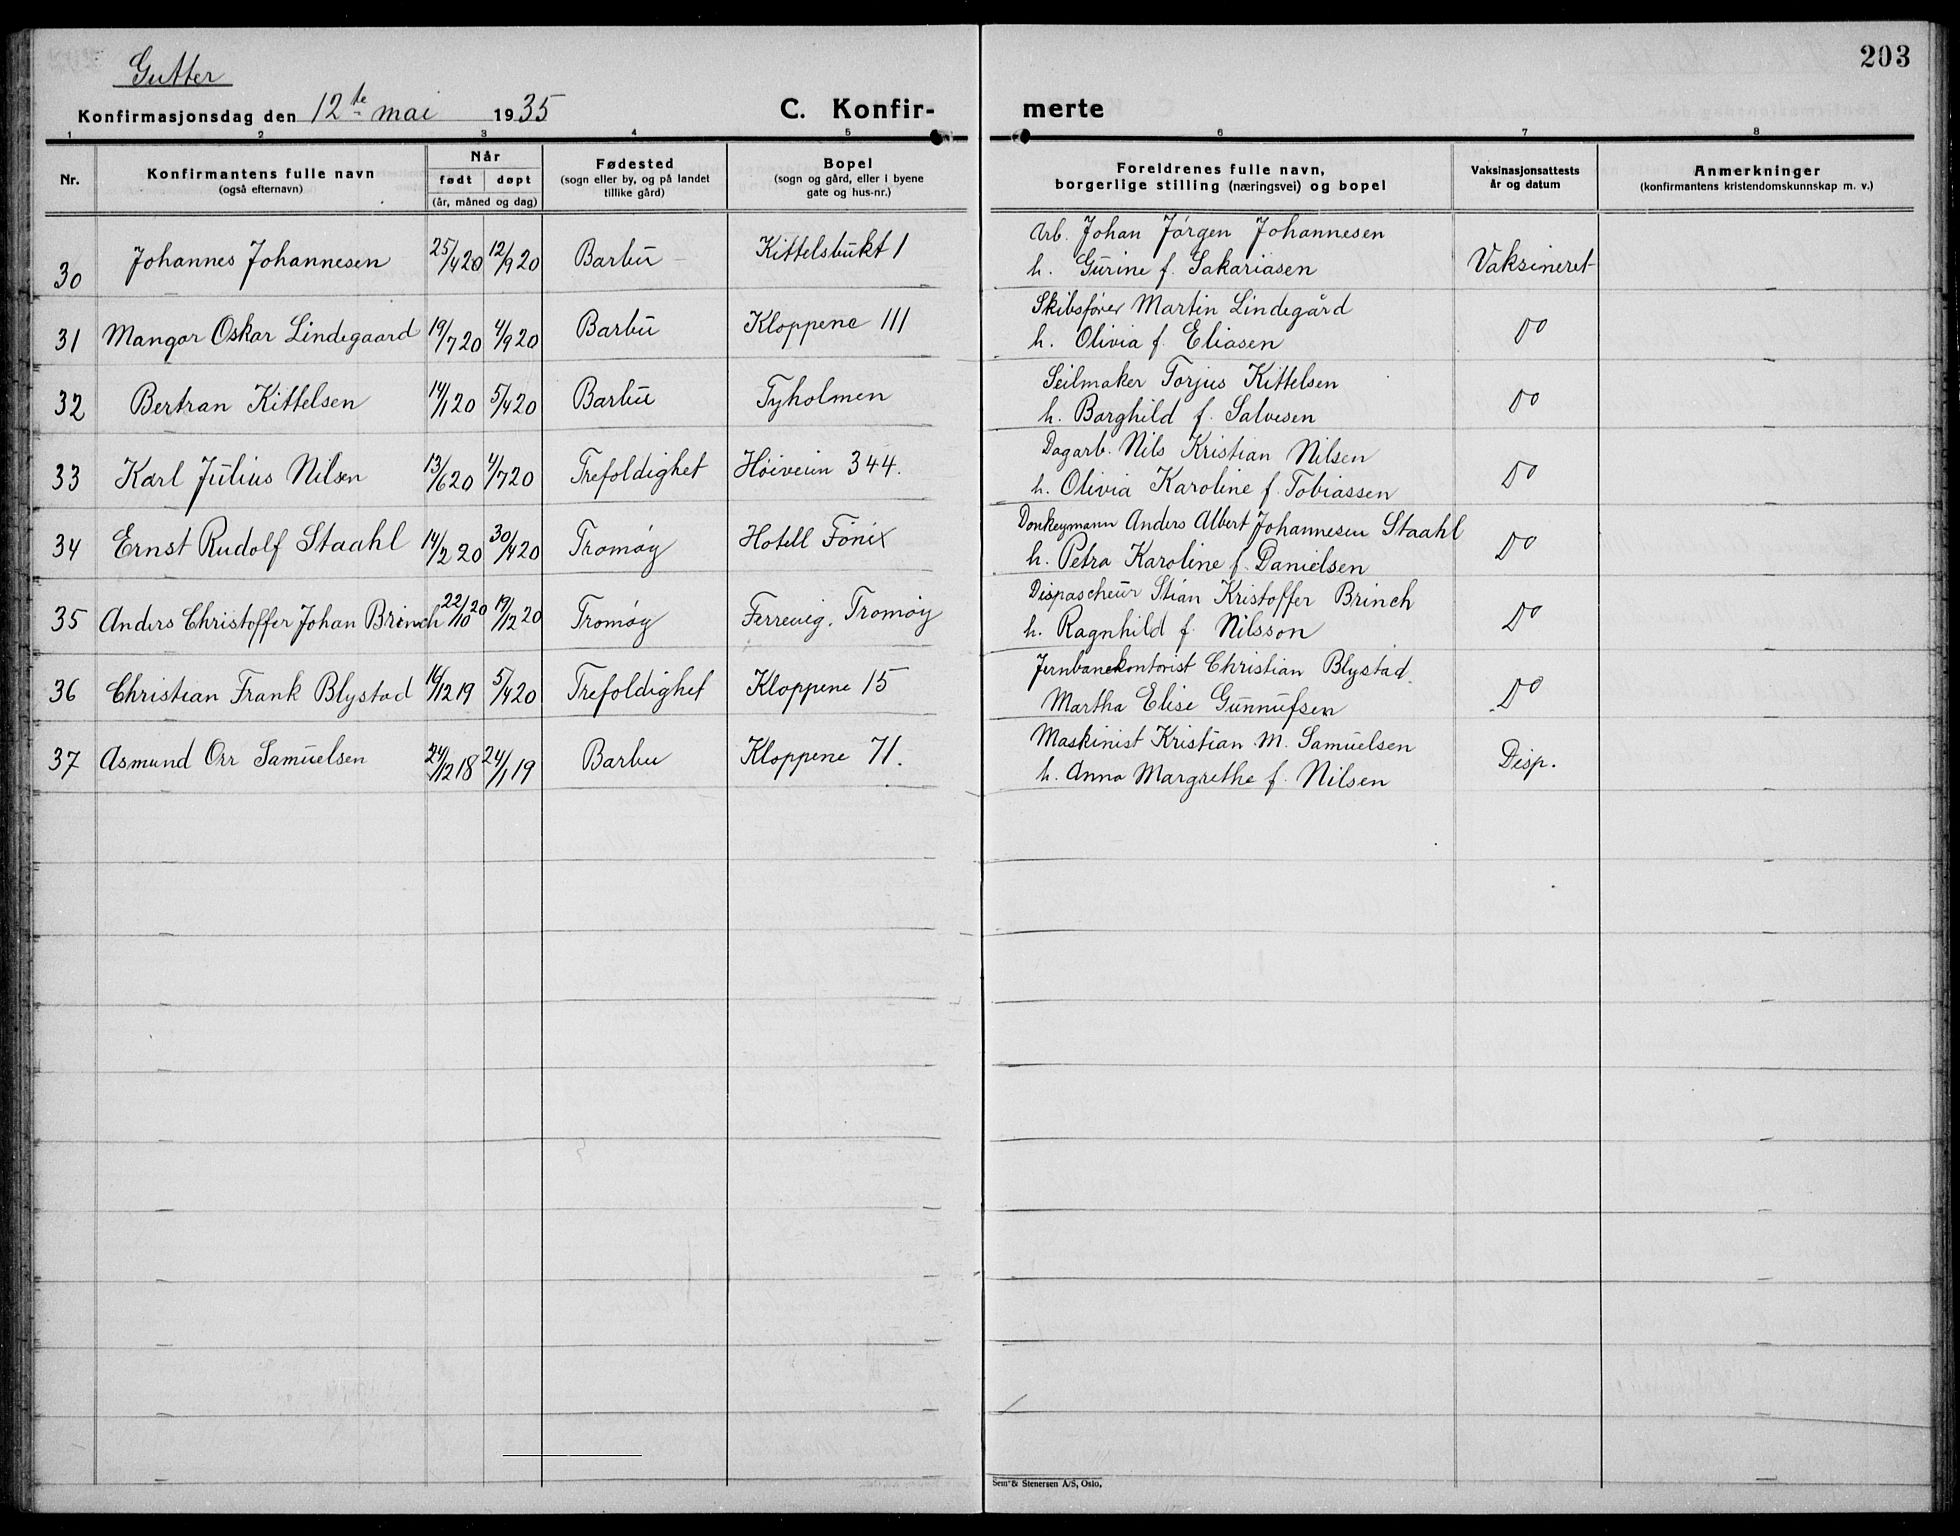 203
Gutter
Konfirmasjonsdag den 12te mai 1935 C. Konfir- merte
1 2 3 4 5 6 7 8
Nr. Konfirmantens fulle navn (også efternavn) Når født døpt (år, måned og dag) Fødested (sogn eller by, og på landet tillike gård) Bopel (sogn og gård, eller i byene gate og hus-nr.) Foreldrenes fulle navn, borgerlige stilling (næringsvei) og bopel Vaksinasjonsattests år og datum Anmerkninger (konfirmantens kristendomskunnskap m. v.)
30 Johannes Johannesen 25/4 20 12/9 20 Barbu Kittelsbukt 1 Arb. Johan Jørgen Johannesen
h. Gurine f. Sakariasen Vaksineret
31 Mangor Oskar Lindegaard 19/7 20 4/9 20 Barbu Kloppene 111 Skibsfører Martin Lindegård
h. Olivia f. Eliasen Do
32 Bertran Kittelsen 14/1 20 5/4 20 Barbu Tyholmen Seilmaker Torjus Kittelsen
h. Borghild f. Salvesen Do
33 Karl Julius Nilsen 13/6 20 4/7 20 Trefoldighet Høiveien 344. Dagarb. Nils Kristian Nilsen
h. Olivia Karoline f. Tobiassen Do
34 Ernst Rudolf Staahl 14/2 20 30/4 20 Tromøy Hotell Fønix Donkeymann Anders Albert Johannesen Staahl
h. Petra Karoline f. Danielsen Do
35 Anders Christoffer Johan Brinch 22/10 20 19/12 20 Tromøy Færrevig, Tromøy Dispascheur Stian Kristoffer Brinch
h. Ragnhild f. Nilsson Do
36 Christian Frank Blystad 16/12 19 5/4 20 Trefoldighet Kloppene 15 Jernbanekontorist Christian Blystad.
Martha Elise Gunnufsen Do
37 Asmund Orr Samuelsen 24/12 18 24/1 19 Barbu Kloppene 71. Maskinist Kristian M. Samuelsen
h. Anna Margrethe f. Nilsen Disp.
Sem & Stenersen A/S, Oslo.